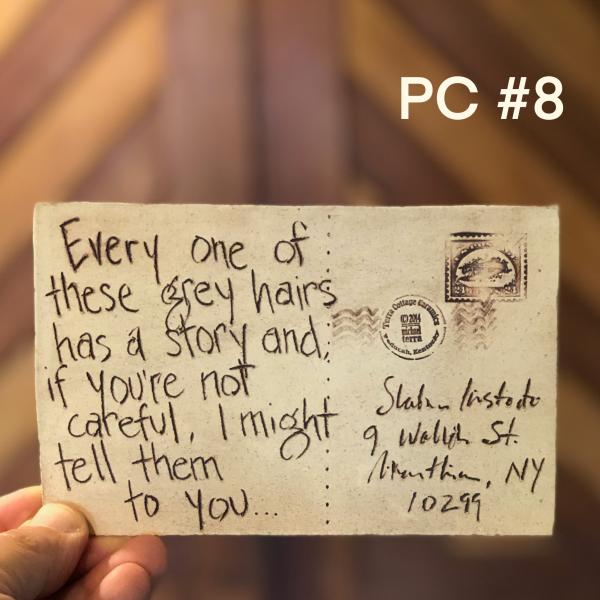 PC #8
Every one of
these grey hairs
has a story and,
if you're not
careful, I might
tell them
to you...
Terra Cottage Ceramics
© 2014
terra
Paducah, Kentucky
9 St.
, NY
10299